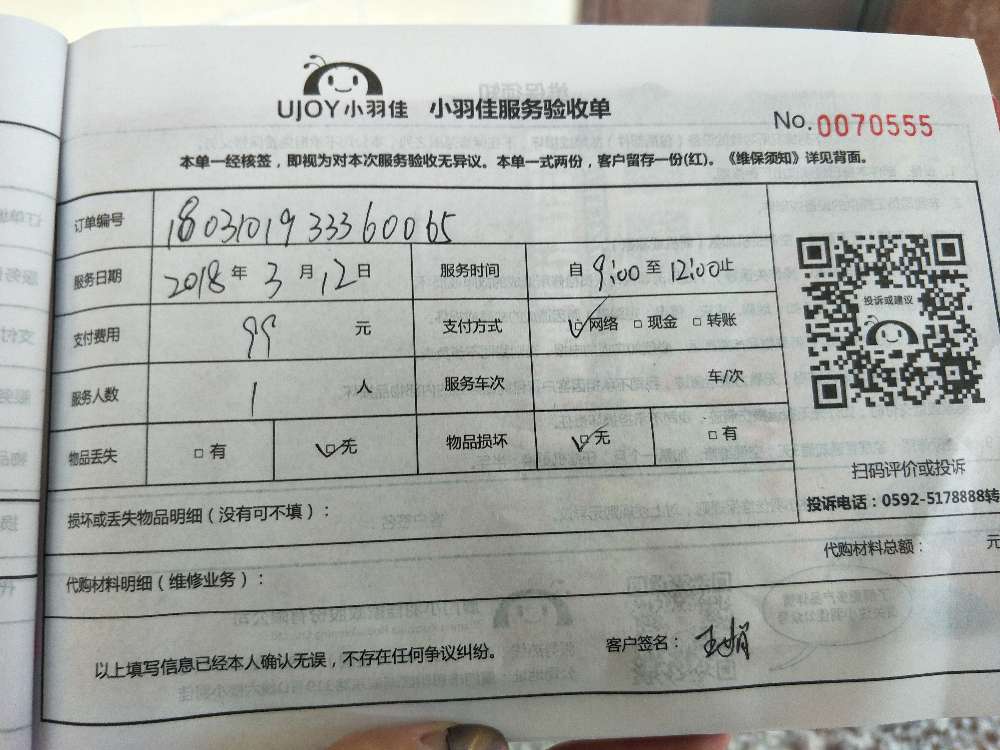 UJOY小羽佳 小羽佳服务验收单
No.0070555
本单一经核签，即视为对本次服务验收无异议。本单一式两份，客户留存一份(红)。《维保须知》详见背面。
订单编号 1803101933360065
服务日期 2018年3月12日 服务时间 自9:00至12:00止
支付费用 99元 支付方式 ☑网络 □现金 □转账
服务人数 1人 服务车次 车/次
物品丢失 □有 ☑无 物品损坏 ☑无 □有
投诉或建议
扫码评价或投诉
投诉电话：0592-5178888转
损坏或丢失物品明细（没有可不填）：
代购材料总额： 元
代购材料明细（维修业务）：
以上填写信息已经本人确认无误，不存在任何争议纠纷。
客户签名：王娟